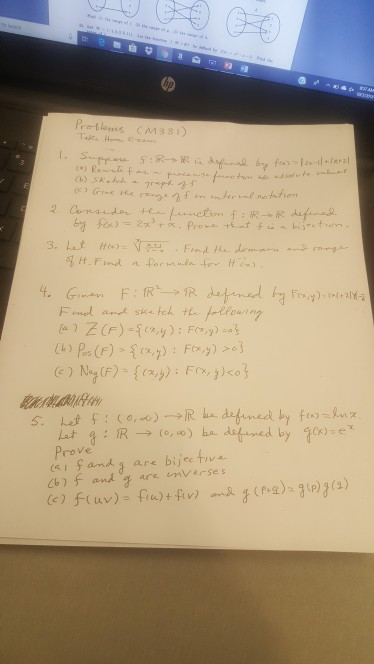 Problems (M331)
Take Home Exam
1. Suppose f: ℝ→ℝ is defined by f(x) =
(a) Rewrite f as a piecewise function no absolute values
(b) Sketch a graph of f
(c) Give the range of f in interval notation
2 Consider the function f: ℝ→ℝ defined
by f(x) = 2x³+x. Prove that f is a bijection.
3. Let H(x) = Find the domain and range
of H. Find a formula for H⁻¹(x).
4. Given F: ℝ²→ℝ defined by F(x,y) =
Find and sketch the following
(a) Z(F) = {(x,y) : F(x,y) = 0}
(b) Pos(F) = {(x,y) : F(x,y) > 0}
(c) Neg(F) = {(x,y) : F(x,y) < 0}
5. Let f: (0,∞) → ℝ be defined by f(x) = ln x.
Let g: ℝ → (0,∞) be defined by g(x) = eˣ
Prove
(a) f and g are bijective
(b) f and g are inverses
(c) f(uv) = f(u) + f(v) and g(p+q) = g(p) g(q)
hp